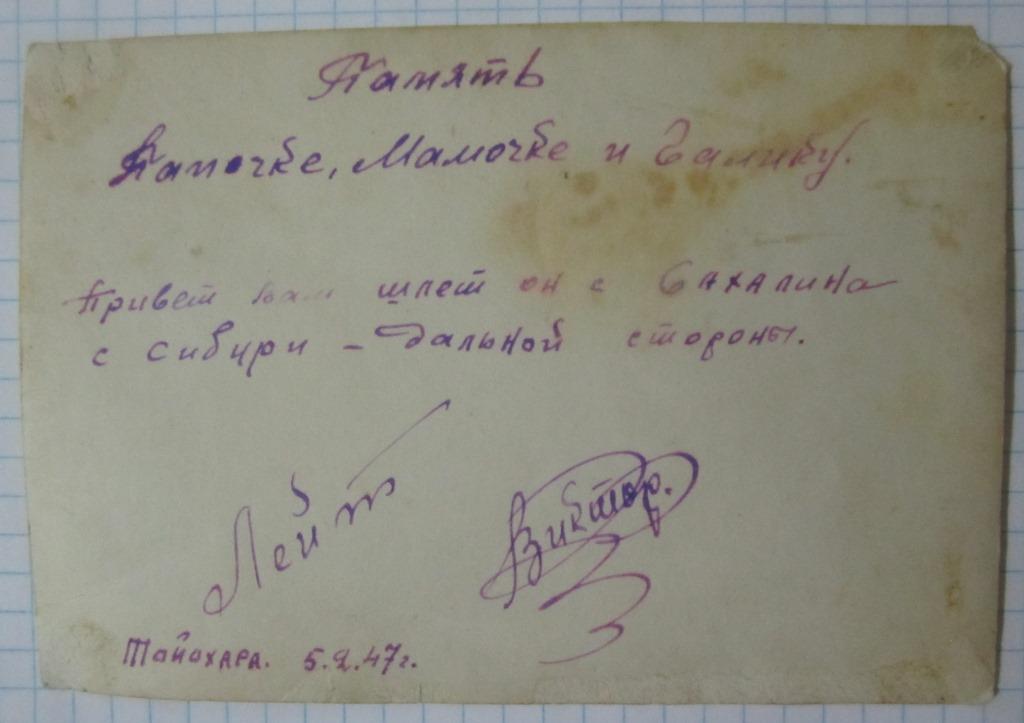 Память
Папочке, Мамочке и Галику.
Привет вам шлет он с Сахалина
с Сибири - дальной стороны.
Лейт
Виктор.
Тойохара. 5.2.47г.